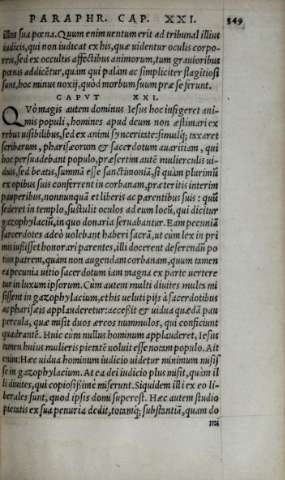 PARAPHR. CAP. XXI. 349
illos sua pœna. Quum enim uentum erit ad tribunal illius
iudicis, qui non iudicat ex his, quæ uidentur oculis corpo-
reis, sed ex occultis affectibus animorum, tum grauioribus
pœnis addicētur, quam qui palam ac simpliciter flagitiosi
sunt, hoc minus noxij, quòd morbum suum præ se ferunt.
CAPVT XXI.
QVò magis autem dominus Iesus hoc infigeret ani-
mis populi, homines apud deum non æstimari ex
rebus uisibilibus, sed ex animi synceritate: simulq; taxaret
scribarum, pharisæorum & sacerdotum auaritiam, qui
hoc persuadebant populo, præsertim autē mulierculis ui-
duis, sed beatis, summā esse sanctimoniā, si quàm plurimū
ex opibus suis conferrent in corbanam, præteritis interim
pauperibus, nonnunquā et liberis ac parentibus suis: quū
sederet in templo, sustulit oculos ad eum locū, qui dicitur
gazophylaciū, in quo donaria seruabantur. Eam pecuniā
sacerdotes adeò uolebant haberi sacrā, ut cùm lex in pri
mis iussisset honorari parentes, illi docerent deserendū po
tius patrem, quàm non augendam corbanam, quum tamen
ea pecunia uitio sacerdotum iam magna ex parte uertere
tur in luxum ipsorum. Cùm autem multi diuites multa mi
sissent in gazophylacium, ethis ueluti pijs à sacerdotibus
ac pharisæis applauderetur: accessit & uidua quædā pau
percula, quæ misit duos æreos nummulos, qui conficiunt
quadrantē. Huic cùm nullus hominum applauderet, Iesus
tamen huius mulieris pietatē uoluit esse notam populo. Ait
enim: Hæc uidua hominum iudicio uidetur minimum misis
se in gazophylacium. At ea dei iudicio plus misit, quàm il
li diuites, qui copiosissimè miserunt. Siquidem illi ex eo li-
berales sunt, quod ipsis domi superest. Hæc autem studio
pietatis ex sua penuria dedit, totamq; substantiā, quam do
mi